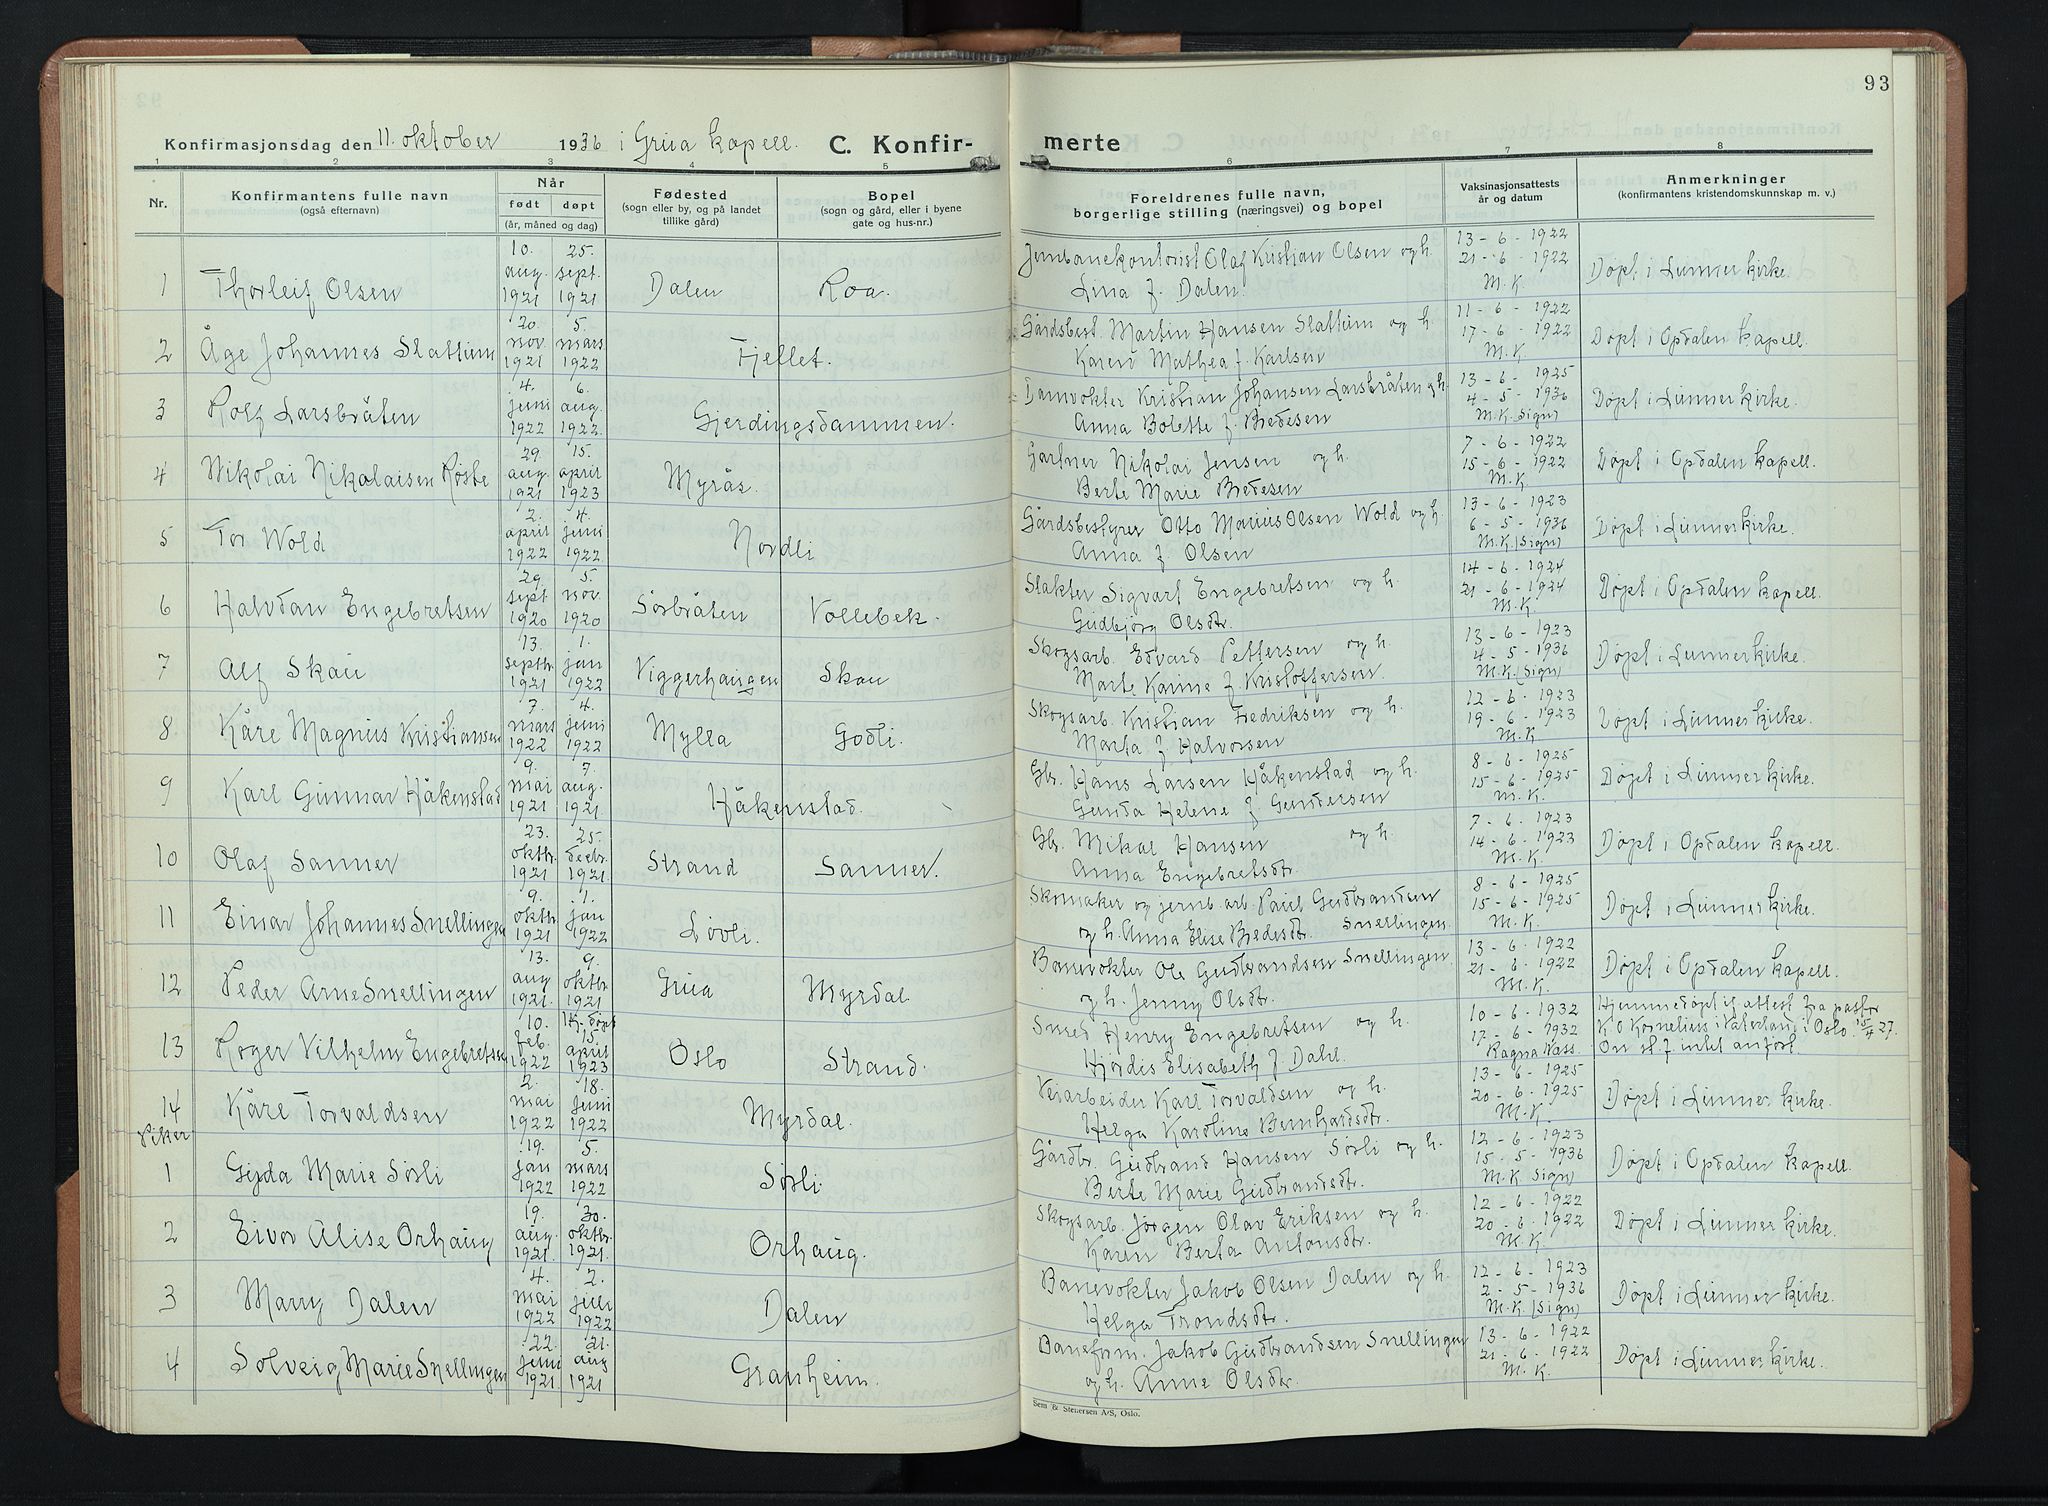 93
Konfirmasjonsdag den 11. oktober 1936 i Grua kapell. C. Konfirmerte
1 2 3 4 5 6 7 8
Nr. Konfirmantens fulle navn (også efternavn) Når født døpt (år, måned og dag) Fødested (sogn eller by, og på landet tillike gård) Bopel (sogn og gård, eller i byene gate og hus-nr.) Foreldrenes fulle navn, borgerlige stilling (næringsvei) og bopel Vaksinasjonsattests år og datum Anmerkninger (konfirmantens kristendomskunnskap m. v.)
1 Thorleif Olsen 10. aug. 1921 25. sept. 1921 Dalen Roa. Jernbanekontorist Olaf Kristian Olsen og h. Lina f. Dalen. 13-6-1922 21-6-1922 M.K. Døpt i Lunner kirke.
2 Åge Johannes Slattum 20. nov. 1921 5. mars 1922 Fjellet. Gårdsbest. Martin Hansen Slattum og h. Karen Mathea f. Karlsen 11-6-1922 17-6-1922 M.K. Døpt i Opdalen kapell.
3 Rolf Larsbråten 4. juni 1922 6. aug. 1922. Gjerdingsdammen. Damvokter Kristian Johansen Larsbråten og h. Anna Bolette f. Bredesen 13-6-1925 4-5-1936 M.K. (Sign) Døpt i Lunner kirke.
4 Nikolai Nikolaisen Røste 29. aug. 1921 15. april 1923 Myrås. Gartner Nikolai Jensen og h. Berte Marie Bredesen 7-6-1922 15-6-1922 M.K. Døpt i Opdalen kapell.
5 Tor Wold 2. april 1922 4. juni 1922. Nordli Gårdsbestyrer Otto Marius Olsen Wold og h. Anna f. Olsen 13-6-1923 6-5-1936 M.K. (Sign) Døpt i Lunner kirke.
6 Halvdan Engebretsen 29. sept 1920 5. nov. 1920 Sørbråten Vollebek. Slakter Sigvart Engebretsen og h. Gudbjørg Olsdtr. 14-6-1924 21-6-1924 M.K. Døpt i Opdalen kapell.
7 Alf Skau 13. septbr 1921 1. jan 1922 Viggerhaugen Skau Skogsarb. Edvard Pettersen og h. Marte Karine f. Kristoffersen. 13-6-1923 4-5-1936 M.K. (Sign) Døpt i Lunner kirke.
8. Kåre Magnus Kristiansen 7. mars 1922 4. juni 1922 Mylla Godli. Skogsarb. Kristian Fredriksen og h. Marta f. Halvorsen 12-6-1923 19-6-1923 M.K. Døpt i Lunner kirke.
9 Karl Gunnar Håkenstad 9. mai 1921 7. aug. 1921. Håkenstad. Gbr. Hans Larsen Håkenstad og h. Gunda Helene f. Gundersen 8-6-1925 15-6-1925 M.K. Døpt i Lunner kirke.
10 Olaf Sanner 23. oktbr. 1921 25. decbr. 1921. Strand Sanner. Gbr. Mikal Hansen og h. Anna Engebretsdtr. 7-6-1923 14-6-1923 M.K. Døpt i Opdalen kapell.
11 Einar Johannes Snellingen 9. oktbr 1921 1. jan 1922 Løvli. Skomaker og jernb.arb. Paul Gudbrandsen og h. Anna Elise Bredesdtr. Snellingen. 8-6-1925 15-6-1925 M.K. Døpt i Lunner kirke.
12 Peder Arne Snellingen 13. aug 1921. 9. oktbr. 1921 Grua Myrdal. Banevokter Ole Gudbrandsen Snellingen. og h. Jenny Olsdtr. 13-6-1922 21-6-1922 M.K. Døpt i Opdalen kapell.
13 Roger Vilhelm Engebretsen 10. feb. 1922 Hj.døpt 15. april 1923 Oslo Strand. Smed Henry Engebretsen og h. Hjørdis Elisabeth f. Dahl. 10-6-1932 17-6-1932 Ragna Næss. Hjemmedøpt if. attest fra pastor K. O. Kornelius i Vaterland i Oslo 15/4 27. Om st. f. intet anført.
14 Kåre Torvaldsen 2. mai 1922 18. juni 1922 Myrdal. Veiarbeider Karl Torvaldsen og h. Helga Karoline Bernhardsdtr. 13-6-1925 20-6-1925 M.K. Døpt i Lunner kirke.
Piker
1 Gyda Marie Sørli 19. jan 1922 5. mars 1922 Sørli. Gårdbr. Gudbrand Hansen Sørli og h. Berte Marie Gudbrandsdtr. 12-6-1923 15-5-1936 M.K. Sign) Døpt i Opdalen kapell.
2 Eivor Alise Orhaug 19. aug. 1921. 30. oktbr. 1921. Orhaug. Skogsarb. Jørgen Olav Eriksen og h. Karen Berta Antonsdtr. 12-6-1922 20-6-1922 M.K. Døpt i Lunner kirke.
3 Marry Dalen 4. mai 1922 2. juli 1922 Dalen Banevokter Jakob Olsen Dalen og h. Helga Trondsdtr. 12-6-1923 2-5-1936 M.K. (Sign) Døpt i Lunner kirke.
4 Solveig Marie Snellingen 22. juni 1921 21. aug 1921 Granheim. Baneform. Jakob Gudbrandsen Snellingen og h. Anne Olsdtr. 13-6-1922 21-6-1922 M.K. Døpt i Lunner kirke.
Sem & Stenersen A/S, Oslo.